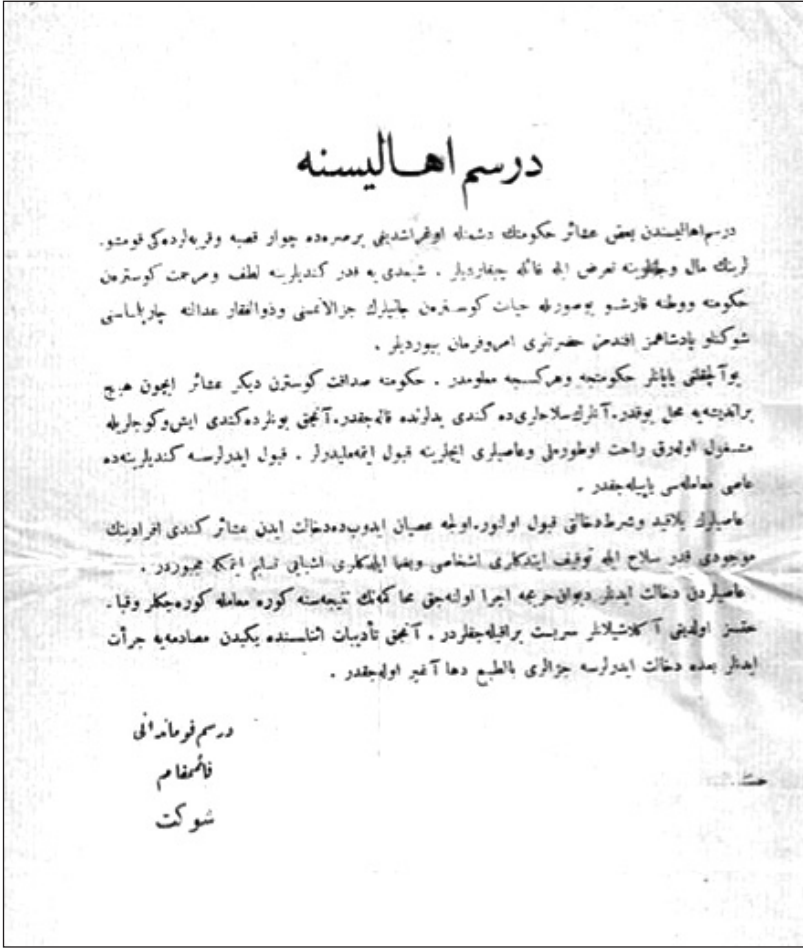 درسم اهــاليسنه
درسم اهاليسندن بعض عشائر حكومتك دشمنله اوغراشديغى برصره‌ده جوار قصبه وقريه‌لرده‌كى قومشو.
لرينك مال وجانلرينه تعرض ايله غائله چيقارديلر . شيمدى يه قدر كنديلرينه لطف ومرحمت كوسترەن
حكومته ووطنه قارشو بوصورتله حيات كوسترەن جانيلرك جزالانمسنى وذوالفقار عدالته چارپلماسنى
شوكتلو پادشاهمز افندمز حضرتلرى امروفرمان بيورديلر .
بوآلچقلغى ياپانلر حكومتجه وهركسجه معلومدر . حكومته صداقت كوسترن ديكر عشائر ايچون هيچ
براندیشه‌يه محل يوقدر. آنلرك سلاحلرى ده كندى يدلرنده قاله‌جقدر. آنجق بونلرده كندى ايش وكوجلريله
مشغول اوله‌رق راحت اوطورملى وعاصيلرى ايچلرينه قبول ايتمه‌ملیدرلر . قبول ايدرلرسه كنديلرينه‌ده
عاصى معامله‌سى ياپيله‌جقدر .
عاصيلرك بلاقيد وشرط دخالتى قبول اولنور. اولجه عصيان ايدوب‌ده دخالت ايدن عشائر كندى افرادينك
موجودى قدر سلاح ايله توقيف ايتدكلرى اشخاصى ويغما ايلدكلرى اشيايى تسليم ايتمكه مجبوردر .
عاصيلردن دخالت ايدنلر ديوان حربجه اجرا اولنه‌جق محاكمه‌نك نتيجه‌سنه كوره معامله كوره‌جكلر وقبا .
حتسز اولديغى آكلاشيلانلر سربست براقيله‌جقلردر . آنجق تأديبات اثناسنده يكيدن مصادمه‌يه جرأت
ايدنلر بعده دخالت ايدرلرسه جزالرى بالطبع دها آغير اوله‌جقدر .
درسم قوماندانى
قائممقام
شوكت